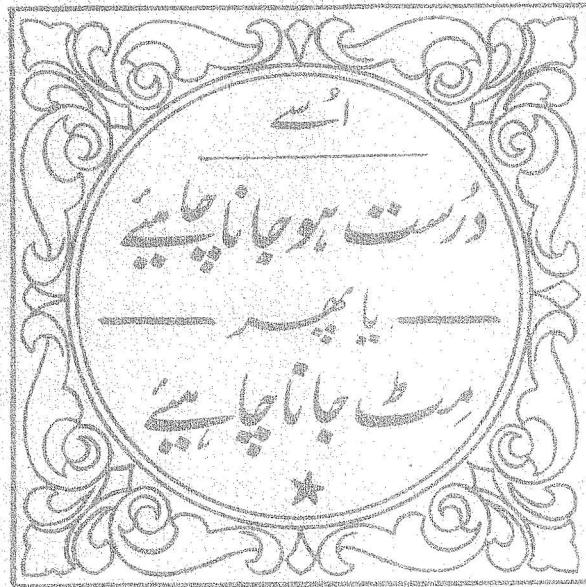 اُسے
درُست ہوجانا چاہیئے
یا پھر
مِٹ جانا چاہیئے